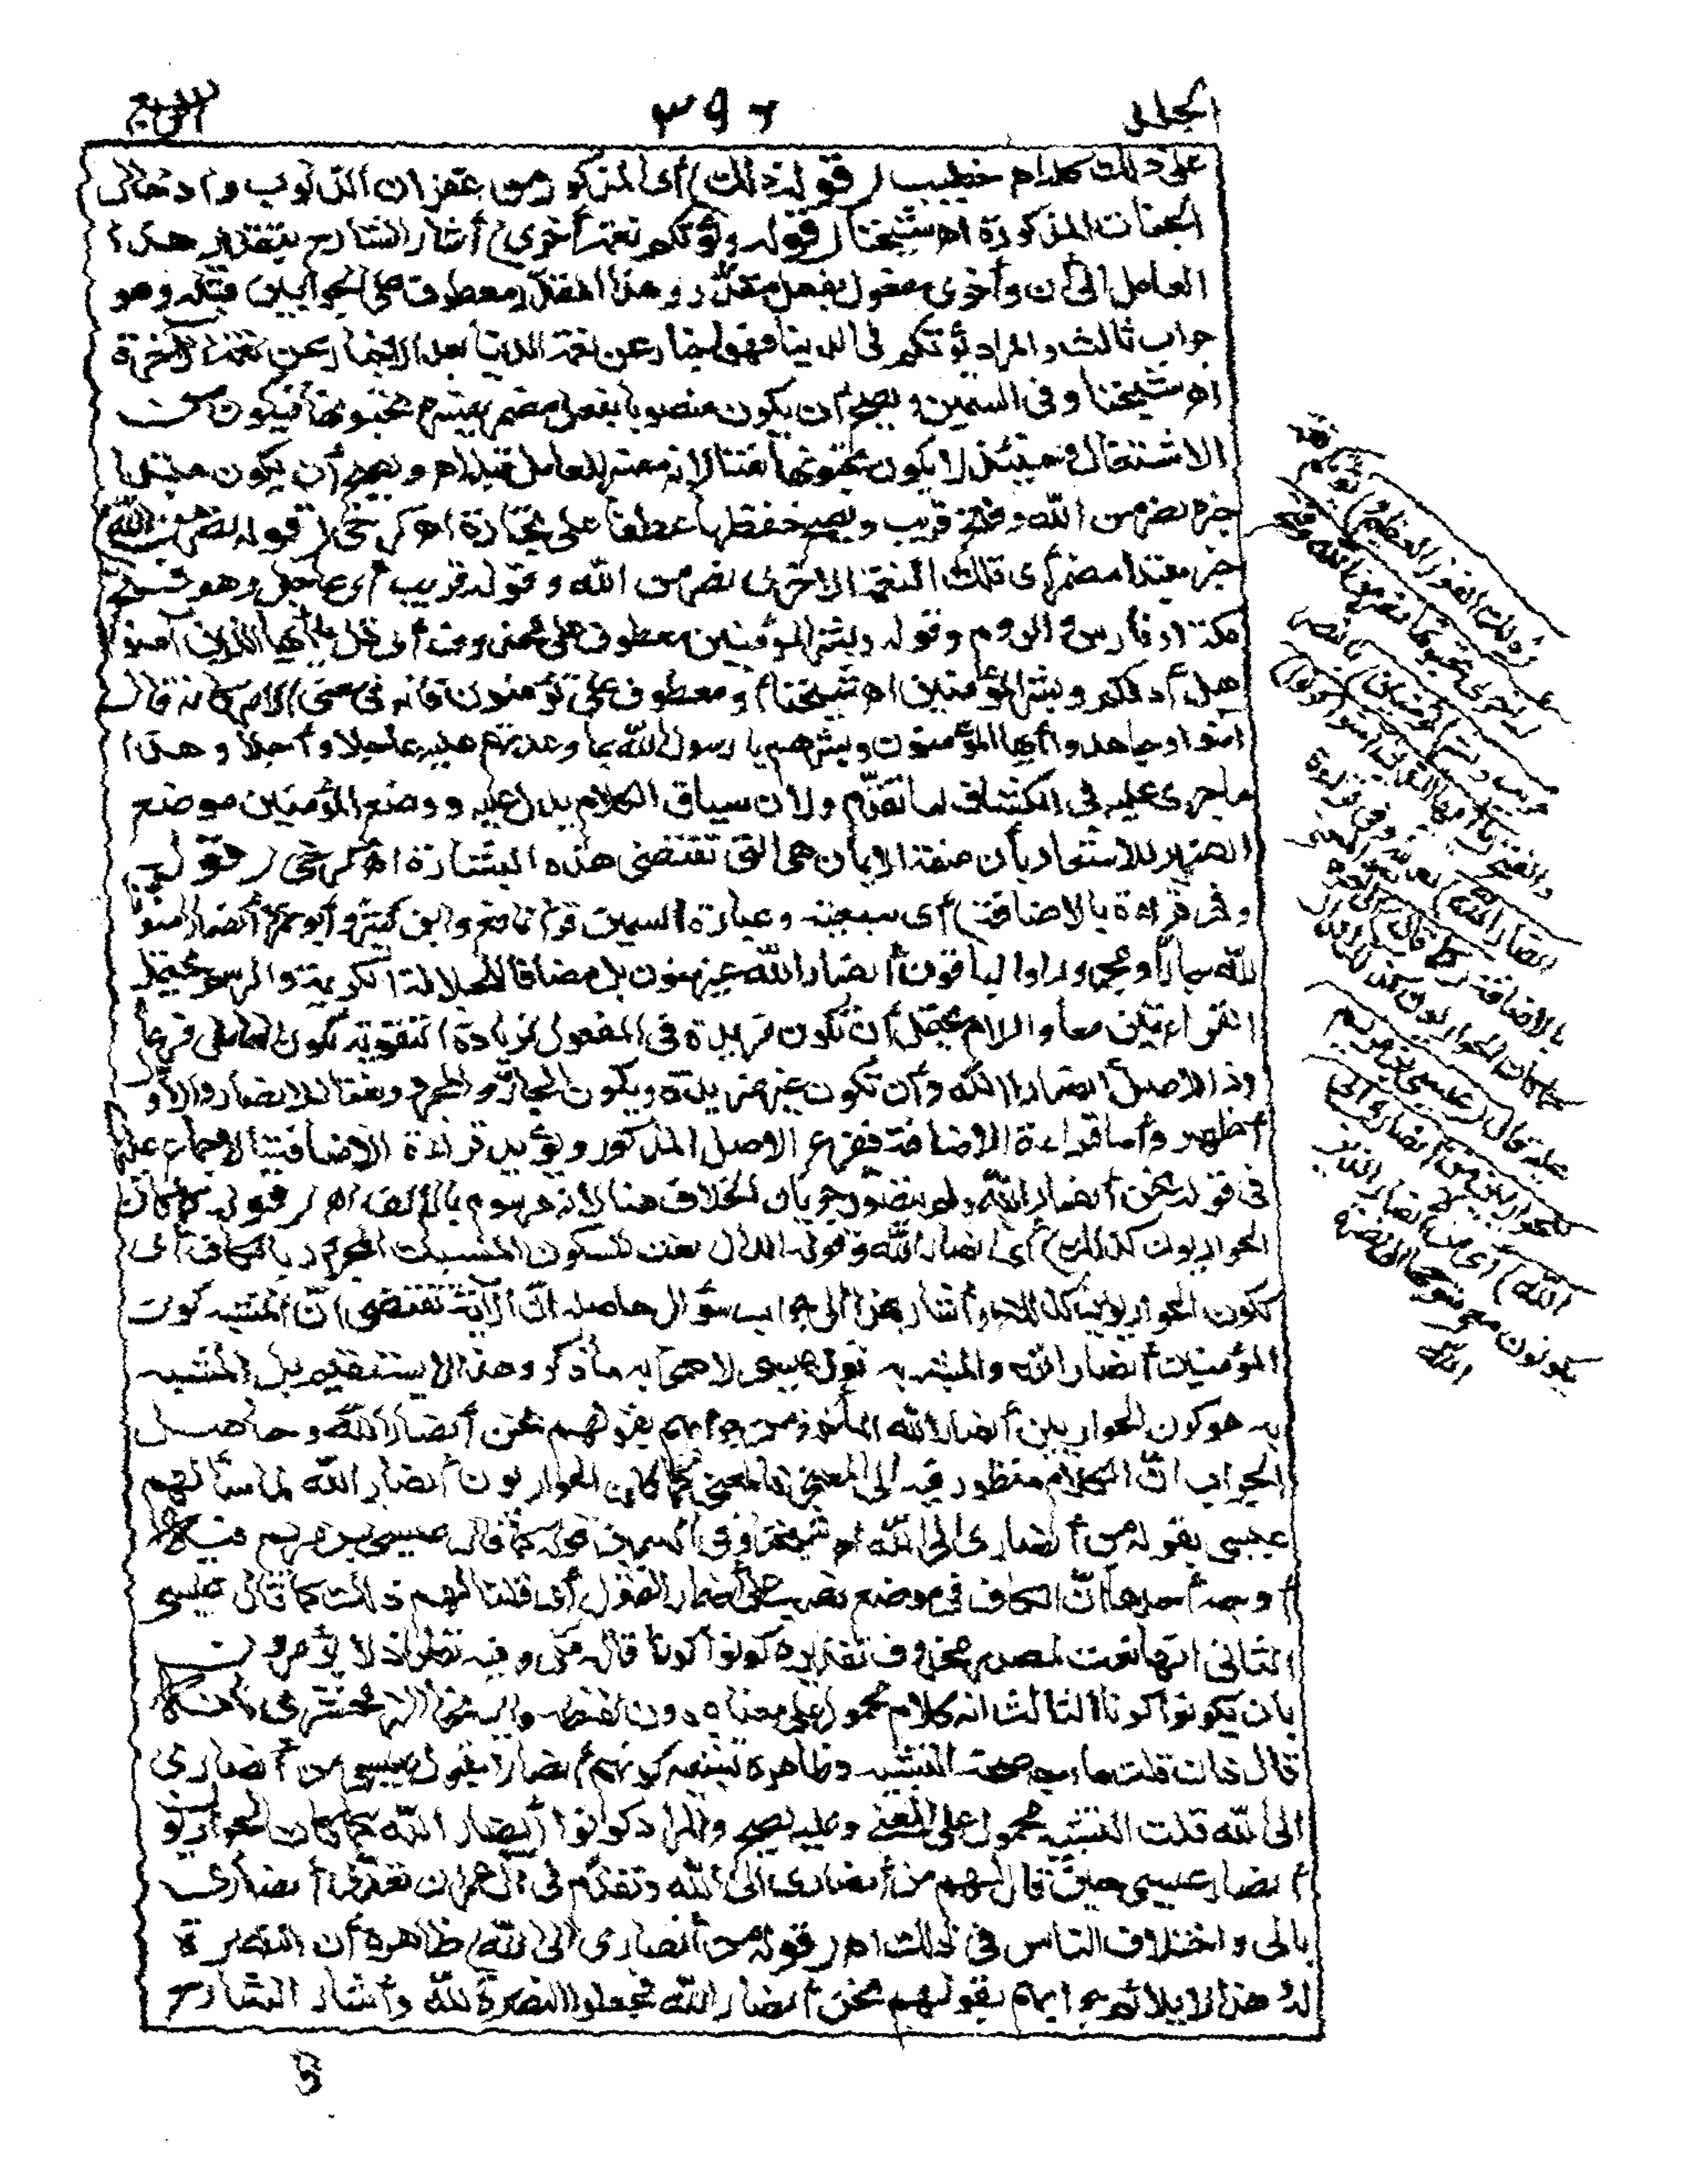 المجلد ٣٩٦ الرابع
على ذلك كلام خطيب (قوله ذلك) أى المذكور من غفران الذنوب وادخال
الجنات المذكورة اه شيخنا (قوله ويؤتكم نعمة أخرى) أشار الشارح بتقدير هذا
العامل الى أن وأخرى مفعول بفعل مقدّر وهذا المقدّر معطوف على الجوابين قبله وهو
جواب ثالث والمراد يؤتكم فى الدنيا فهو اخبار عن نعمة الدنيا بعد الاخبار عن نعمة الآخرة
اه شيخنا وفى السمين ويصح أن يكون منصوبا بفعل مضمر يفسره تحبونها فيكون من
الاشتغال وحينئذ لا يكون تحبونها نعتا لانه مفسر للعامل قبله اه ويصح أن يكون مبتدا
خبره نصر من الله وفتح قريب ويصح خفظها عطفا على تجارة اه كرخى (قوله نصر من الله)
خبر مبتدا مضمر أى تلك النعمة الاخرى نصر من الله وقوله قريب أى عاجل وهو فتح
مكة أو فارس والروم وقوله وبشر المؤمنين معطوف على محذوف أى قل يا أيها الذين آمنوا
هل أدلكم وبشر المؤمنين اه شيخنا أو معطوف على تؤمنون فانه فى معنى الامر كانه قال
آمنوا وجاهدوا أيها المؤمنون وبشرهم يا رسول الله بما وعدتهم عليه عاجلا وآجلا وهذا
ما جرى عليه فى الكشاف لما تقدّم ولان سياق الكلام يدل عليه ووضع المؤمنين موضع
الضمير للاشعار بأن صفة الايمان هى التى تقتضى هذه البشارة اه كرخى (قوله
وفى قراءة بالاضافة) أى سبعية وعبارة السمين قرأ نافع وابن كثير وأبو عمرو أنصارا منونا
لله جارّا ومجرورا والباقون أنصار الله غير منون بل مضافا للجلالة الكريمة والرسم يحتمل
القراءتين معا واللام يحتمل أن تكون مزيدة فى المفعول لزيادة التقوية لكون العامل فرعا
اذ الاصل أنصارا الله وأن تكون غير مزيدة ويكون الجار والمجرور نعتا لانصار والاوّل
أظهر وأما قراءة الاضافة ففرع الاصل المذكور ويؤيد قراءة الاضافة الاجماع عليها
فى قوله نحن أنصار الله ولم يتصوّر جريان الخلاف هنا لانه مرسوم بالالف اه (قوله كما كان
الحواريون كذلك) أى أنصار الله وقوله الدال نعت للسكون المنسبك المجرور بالكاف أى
ككون الحواريين كذلك وأشار بهذا الى جواب سؤال حاصله انّ الآية تقتضى انّ المشبه كون
المؤمنين أنصار الله والمشبه به قول عيسى لاصحابه ما ذكر وهذا لا يستقيم بل المشبه
به هو كون الحواريين أنصار الله المأخوذ من جوابهم بقولهم نحن أنصار الله وحاصل
الجواب انّ الكلام منظور فيه الى المعنى فالمعنى كما كان الحواريون أنصار الله لما سألهم
عيسى بقوله من أنصارى الى الله اه شيخنا وفى السمين قوله كما قال عيسى بن مريم فيه
أوجه أحدها انّ الكاف فى موضع نصب على اضمار القول أى قلنا لهم ذلك كما قال عيسى
الثانى انها نعت لمصدر محذوف تقديره كونوا كونا قاله مكى وفيه نظر اذ لا يؤمرون
بان يكونوا كونا الثالث انه كلام محمول على معناه دون لفظه واليه نحا الزمخشرى فانه
قال فان قلت ما وجه صحة التشبيه وظاهره تشبيه كونهم أنصارا بقول عيسى من أنصارى
الى الله قلت التشبيه محمول على المعنى وعليه يصح والمراد كونوا أنصار الله كما كان الحواريون
أنصار عيسى حين قال لهم من أنصارى الى الله وتقدّم فى آل عمران تعدّى أنصارى
بالى واختلاف الناس فى ذلك اه (قوله من أنصارى الى الله) ظاهره أن النصرة
له هذا لا يلائم جوابهم بقولهم نحن أنصار الله فجعلوا النصرة لله وأشار الشارح
(ذلك الفوز العظيم و) يؤتكم
(أخرى تحبونها نصر من الله وفتح
قريب وبشر المؤمنين) بالنصر
والفتح (يا أيها الذين آمنوا كونوا
أنصار الله) لدينه وفى قراءة
بالاضافة (كما قال) الخ المعنى
كما كان الحواريون كذلك الدال
عليه قال (عيسى بن مريم
للحواريين من أنصارى الى
الله) أى من أنصار الذين
يكونون معى متوجها الى نصرة
الله